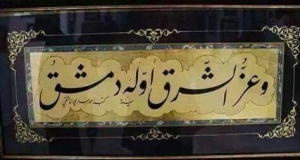 وعزُّ الشرق أوّله دمشق